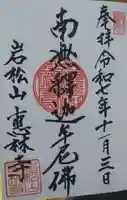 奉拝 令和七年十一月三日
南無釋迦牟尼佛
岩松山 惠林寺